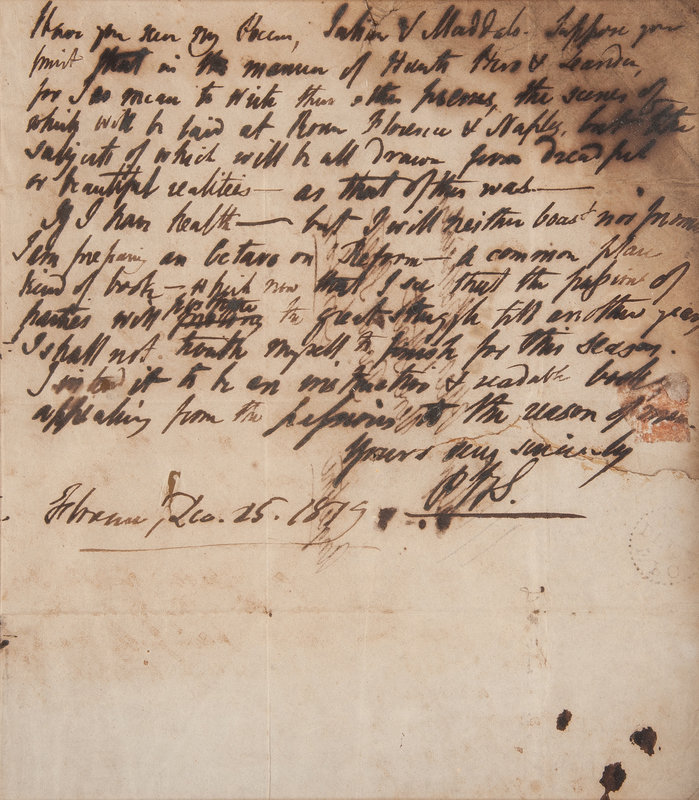 Have you seen my Poem, Julian & Maddalo. Suppose you
print that in the manner of Hunts Hero & Leander,
for I so mean to write three other poems, the scenes of
which will be laid at Rome Florence & Naples, but the
subjects of which will be all drawn from dreadful
or beautiful realities— as that of this was.—
If I have health— but I will neither boast nor promise
I am preparing an octavo on Reform— a common place
kind of book— which now that I see that the passions of
parties will postpone the great struggle till another year
I shall not trouble myself to finish for this season.
I intend it to be an instructive & readable book
appealing from the passions to the reason of men.
Yours very sincerely
PBS.
Florence, Dec. 25. 1819